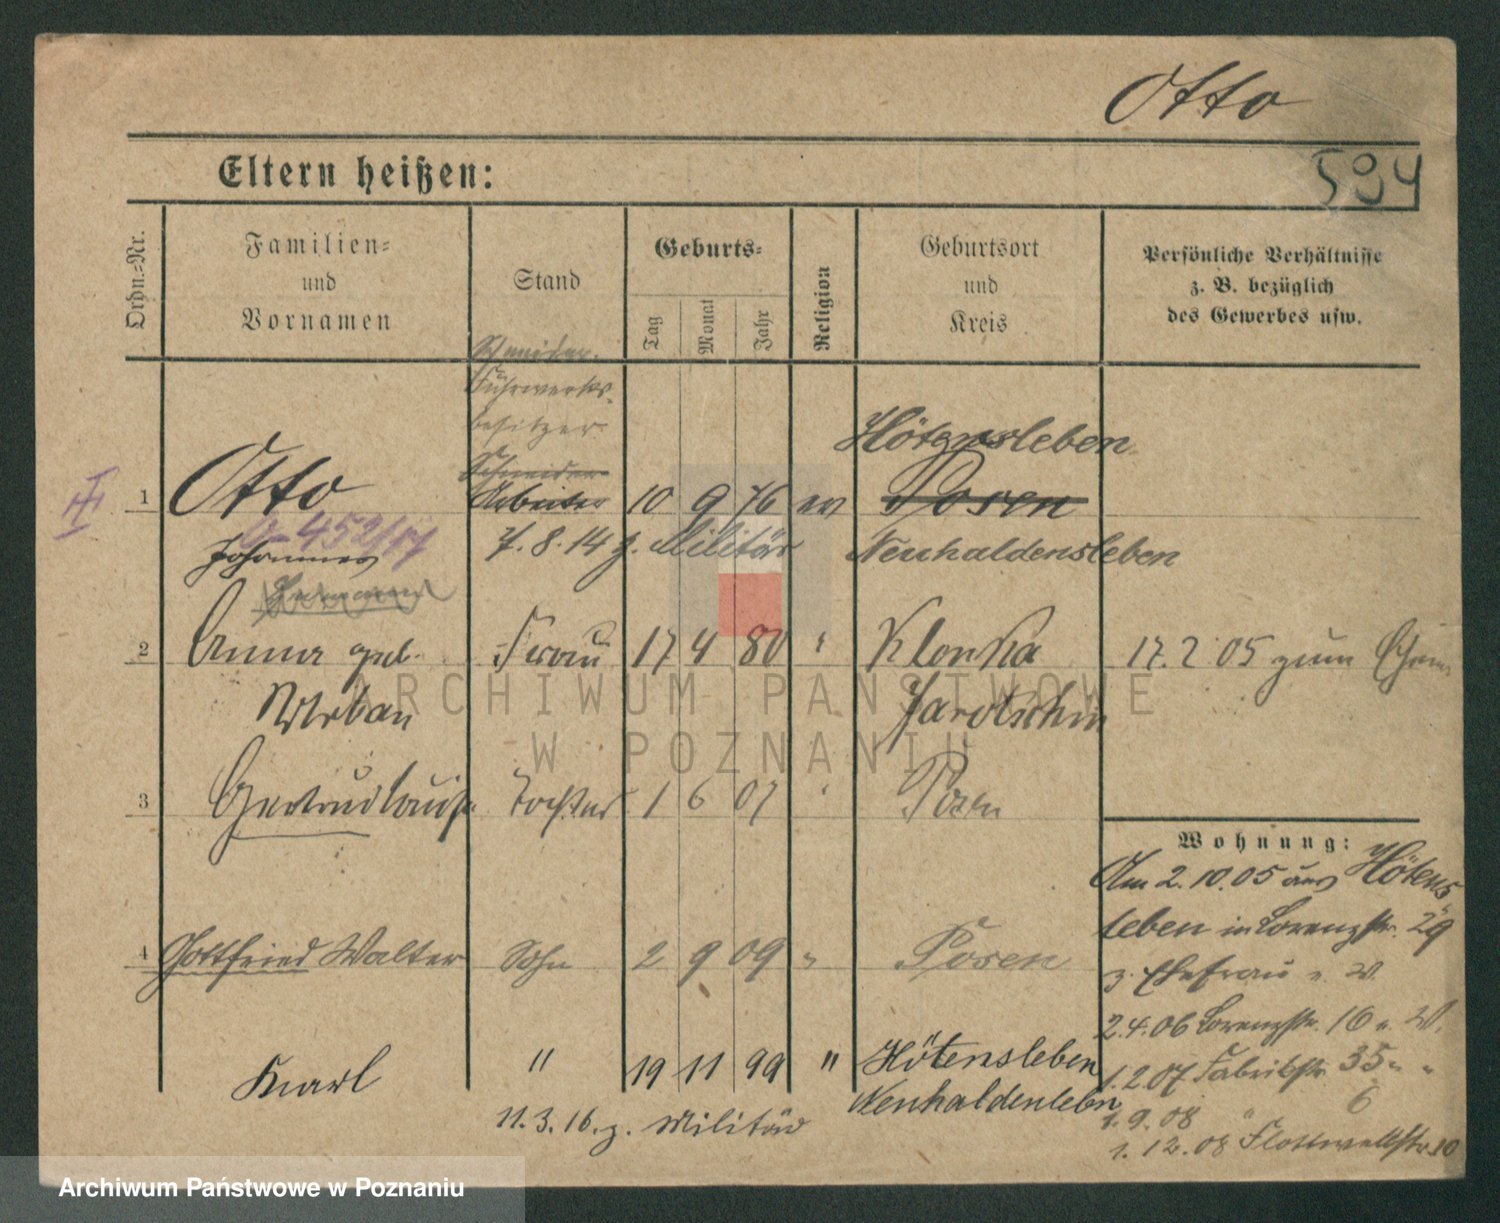 Otto
594
Eltern heißen:
Ordn.-Nr.
Familien-
und
Vornamen
Stand
Geburts-
Tag
Monat
Jahr
Religion
Geburtsort
und
Kreis
Persönliche Verhältnisse
z. B. bezüglich
des Gewerbes usw.
Fuhrwerks-
besitzer
Schneider
Hötensleben
1 Otto Arbeiter 10 9 76 ev Posen
452/17
Johannes 7. 8. 14 z. Militär Neuhaldensleben
2 Anna geb. Frau 17 4 80 " Klonka 17. 2 05 zum
Urban Jarotschin
3 Gertrud Louise Tochter 1 6 07 " Posen
Wohnung:
Am 2. 10. 05 aus Hötens
leben in Lorenzstr. 29
z. Ehefrau
4 Gottfried Walter Sohn 2 9 09 " Posen
2. 4. 06 Lorenzstr. 16
Karl " 19 11 99 " Hötensleben
Neuhaldenslebn
1. 2 07 Fabrikstr. 35 " "
1. 9. 08 " 6
11. 3. 16. z. Militär
1. 12. 08 Flottwellstr. 10
ARCHIWUM PAŃSTWOWE
W POZNANIU
Archiwum Państwowe w Poznaniu